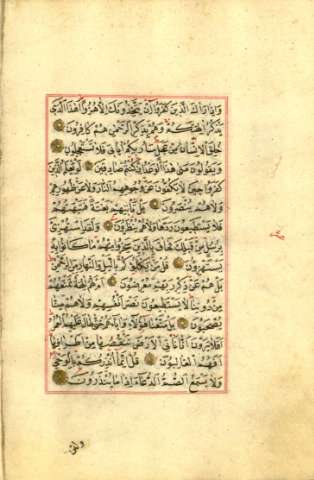 وَإِذَا رَآكَ الَّذِينَ كَفَرُوا إِنْ يَتَّخِذُونَكَ إِلَّا هُزُوًا أَهَذَا الَّذِي
يَذْكُرُ آلِهَتَكُمْ وَهُمْ بِذِكْرِ الرَّحْمَنِ هُمْ كَافِرُونَ
خُلِقَ الْإِنْسَانُ مِنْ عَجَلٍ سَأُرِيكُمْ آيَاتِي فَلَا تَسْتَعْجِلُونِ
وَيَقُولُونَ مَتَى هَذَا الْوَعْدُ إِنْ كُنْتُمْ صَادِقِينَ لَوْ يَعْلَمُ الَّذِينَ
كَفَرُوا حِينَ لَا يَكُفُّونَ عَنْ وُجُوهِهِمُ النَّارَ وَلَا عَنْ ظُهُورِهِمْ
وَلَا هُمْ يُنْصَرُونَ بَلْ تَأْتِيهِمْ بَغْتَةً فَتَبْهَتُهُمْ
فَلَا يَسْتَطِيعُونَ رَدَّهَا وَلَا هُمْ يُنْظَرُونَ وَلَقَدِ اسْتُهْزِئَ
بِرُسُلٍ مِنْ قَبْلِكَ فَحَاقَ بِالَّذِينَ سَخِرُوا مِنْهُمْ مَا كَانُوا بِهِ
يَسْتَهْزِؤُنَ قُلْ مَنْ يَكْلَؤُكُمْ بِالَّيْلِ وَالنَّهَارِ مِنَ الرَّحْمَنِ
بَلْ هُمْ عَنْ ذِكْرِ رَبِّهِمْ مُعْرِضُونَ أَمْ لَهُمْ آلِهَةٌ تَمْنَعُهُمْ
مِنْ دُونِنَا لَا يَسْتَطِيعُونَ نَصْرَ أَنْفُسِهِمْ وَلَا هُمْ مِنَّا
يُصْحَبُونَ بَلْ مَتَّعْنَا هَؤُلَاءِ وَآبَاءَهُمْ حَتَّى طَالَ عَلَيْهِمُ الْعُمُرُ
أَفَلَا يَرَوْنَ أَنَّا نَأْتِي الْأَرْضَ نَنْقُصُهَا مِنْ أَطْرَافِهَا
أَفَهُمُ الْغَالِبُونَ قُلْ إِنَّمَا أُنْذِرُكُمْ بِالْوَحْيِ
وَلَا يَسْمَعُ الصُّمُّ الدُّعَاءَ إِذَا مَا يُنْذَرُونَ
ولئن